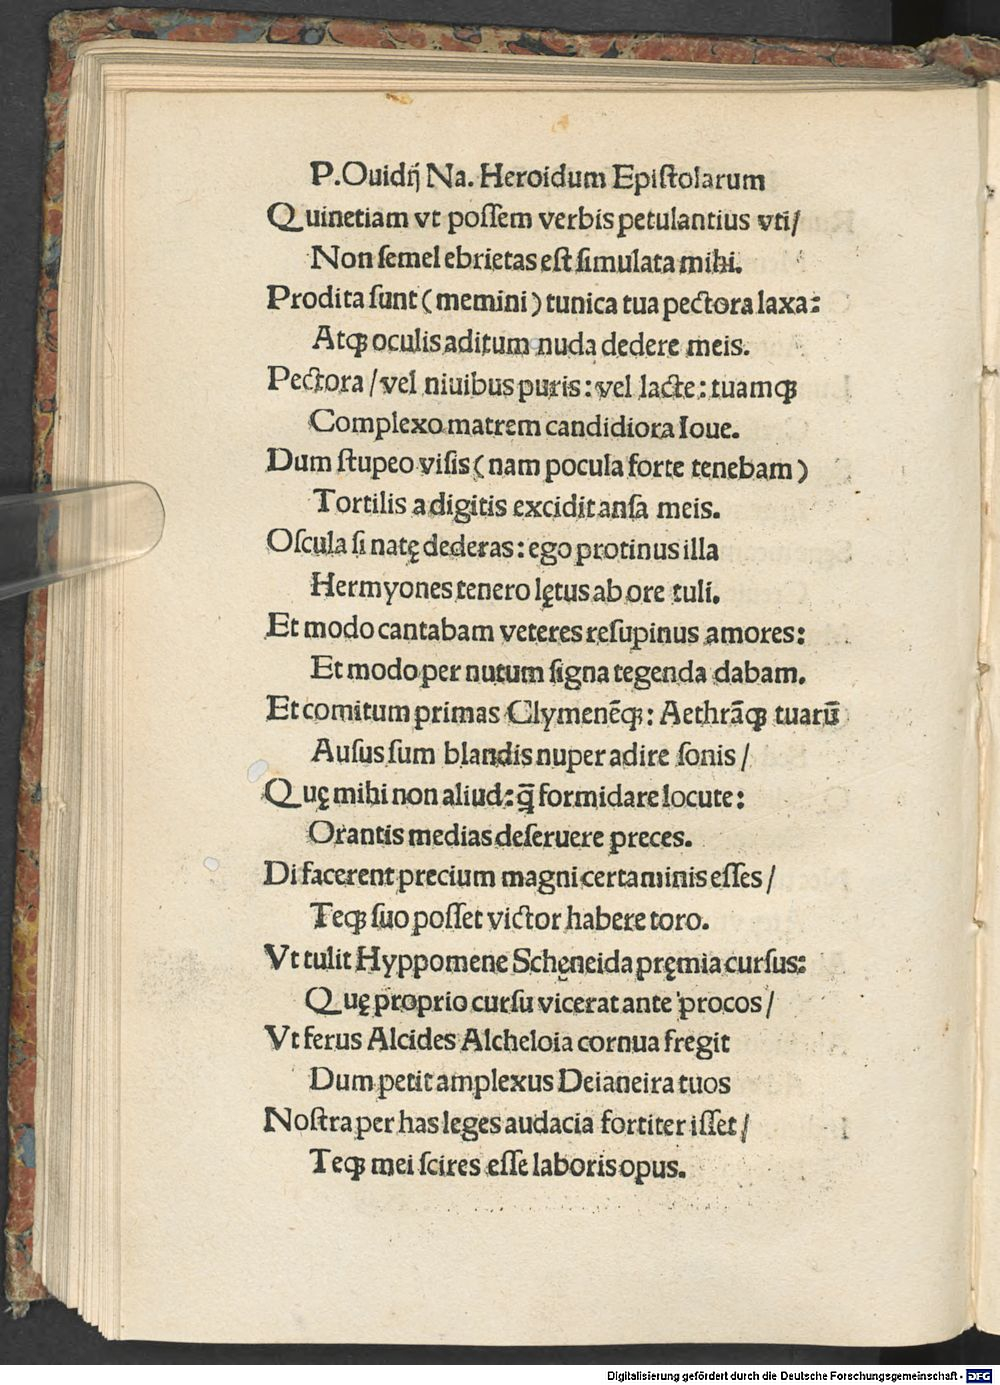 P.Ouidij Na. Heroidum Epiſtolarum
Quinetiam vt poſſem verbis petulantius vti/
Non ſemel ebrietas eſt ſimulata mihi.
Prodita ſunt (memini) tunica tua pectora laxa:
Atqꝫ oculis aditum nuda dedere meis.
Pectora / vel niuibus puris: vel lacte: tuamqꝫ
Complexo matrem candidiora Ioue.
Dum ſtupeo viſis (nam pocula forte tenebam)
Tortilis a digitis excidit anſa meis.
Oſcula ſi natę dederas: ego protinus illa
Hermyones tenero lętus ab ore tuli.
Et modo cantabam veteres reſupinus amores:
Et modo per nutum ſigna tegenda dabam.
Et comitum primas Clymenēqꝫ: Aethrāqꝫ tuarū
Auſus ſum blandis nuper adire ſonis /
Quę mihi non aliud: q̄ formidare locute:
Orantis medias deſeruere preces.
Di facerent precium magni certaminis eſſes /
Teqꝫ ſuo poſſet victor habere toro.
Vt tulit Hyppomene Schęneida pręmia curſus:
Quę proprio curſu vicerat ante procos /
Vt ferus Alcides Alcheloia cornua fregit
Dum petit amplexus Deianeira tuos
Noſtra per has leges audacia fortiter iſſet /
Teqꝫ mei ſcires eſſe laboris opus.
Digitalisierung gefördert durch die Deutsche Forschungsgemeinschaft - DFG